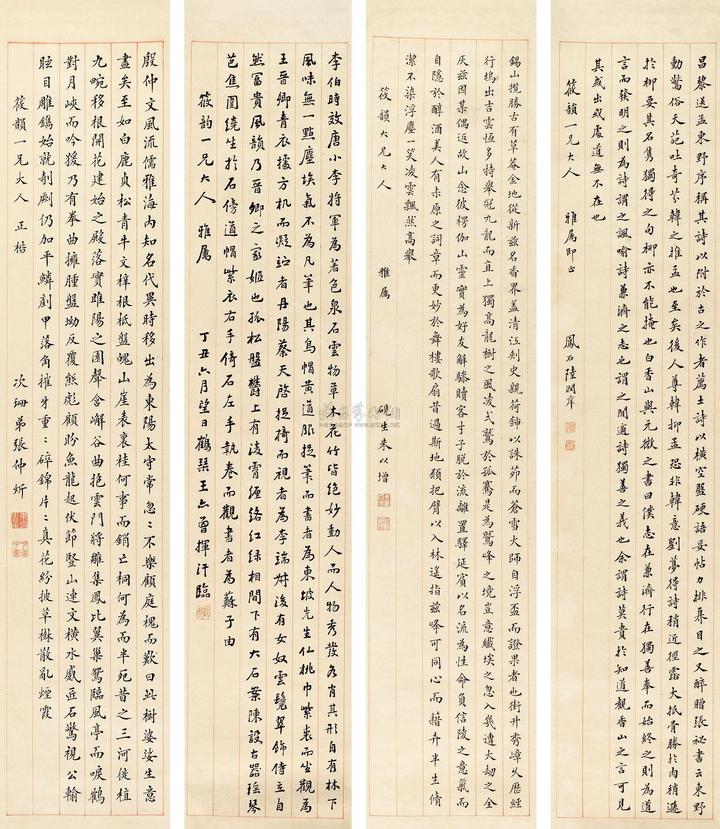 昌黎送孟東野序稱其詩以附於古之作者薦士詩以橫空盤硬語妥帖力排奡目之又醉贈張祕書云東野
動驚俗天葩吐奇芬韓之推孟也至矣後人尊韓抑孟恐非韓意劉夢得詩稍近徑露大抵骨勝於肉稍遜
於柳要其名雋獨得之句柳亦不能掩也白香山與元微之書曰僕志在兼濟行在獨善奉而始終之則為道
言而發明之則為詩謂之諷喻詩兼濟之志也謂之閒適詩獨善之義也余謂詩莫貴於知道觀香山之言可見
其或出或處道無不在也
筱韻一兄大人 雅屬即正 鳳石陸潤庠
錫山攬勝古有草菴金地從新茲名香界蓋清江刺史親荷鍤以誅茆而蒼雪大師自浮盃而證果者也街升秀嶂久歷經
行塢出吉雲恆多特舉冠九龍而直上獨高龍樹之風凌鷲於孤騫是為鷲峰之境豈意纖埃之忽入幾遭大劫之全
灰茲因某偶近故山念彼楞伽山靈實為好友解驂贖客寸子脫於流離置驛延賓以名流為性命負信陵之意氣而
自隱於醇酒美人有赤原之詞章而更妙於舞樓歌扇昔過斯地頻把臂以入林遙指茲峰可同心而藉卉半生脩
潔不染浮塵一笑凌雲飄然高舉
筱韻大兄大人 雅屬 硯生朱以增
李伯時效唐小李將軍為著色泉石雲物草木花竹皆絕妙動人而人物秀發各肖其形自有林下
風味無一點塵埃氣不為凡筆也其烏帽黃道服捉筆而書者為東坡先生仙桃巾紫裘而坐觀為
王晉卿青衣據方机而凝竚者丹陽蔡天啟捉掎而視者為李端叔後有女奴雲鬟翠飾侍立自
然富貴風韻乃晉卿之家姬也孤松盤鬱上有淩霄纏絡紅綠相間下有大石案陳設古器瑤琴
芭蕉圍繞坐於石傍道帽紫衣右手倚石左手執卷而觀書者為蘇子由
筱韵一兄大人 雅屬 丁丑六月望日鶴琹王曾揮汗臨
殷仲文風流儒雅海內知名代異時移出為東陽太守常忽忽不樂顧庭槐而歎曰此樹婆娑生意
盡矣至如白鹿貞松青牛文梓根柢盤魄山崖表裏桂何事而銷亡桐何為而半死昔之三河徙植
九畹移根開花建始之殿落實睢陽之園聲含嶰谷曲抱雲門將雛集鳳比翼巢鴛臨風亭而唳鶴
對月峽而吟猨乃有拳曲擁腫盤坳反覆熊彪顧盼魚龍起伏節豎山連文橫水蹙匠石驚視公輸
眩目雕鐫始就剞劂仍加平鱗剷甲落角摧牙重重碎錦片片真花紛披草樹散亂煙霞
筱韻一兄大人 正楷 次珊弟張仲炘